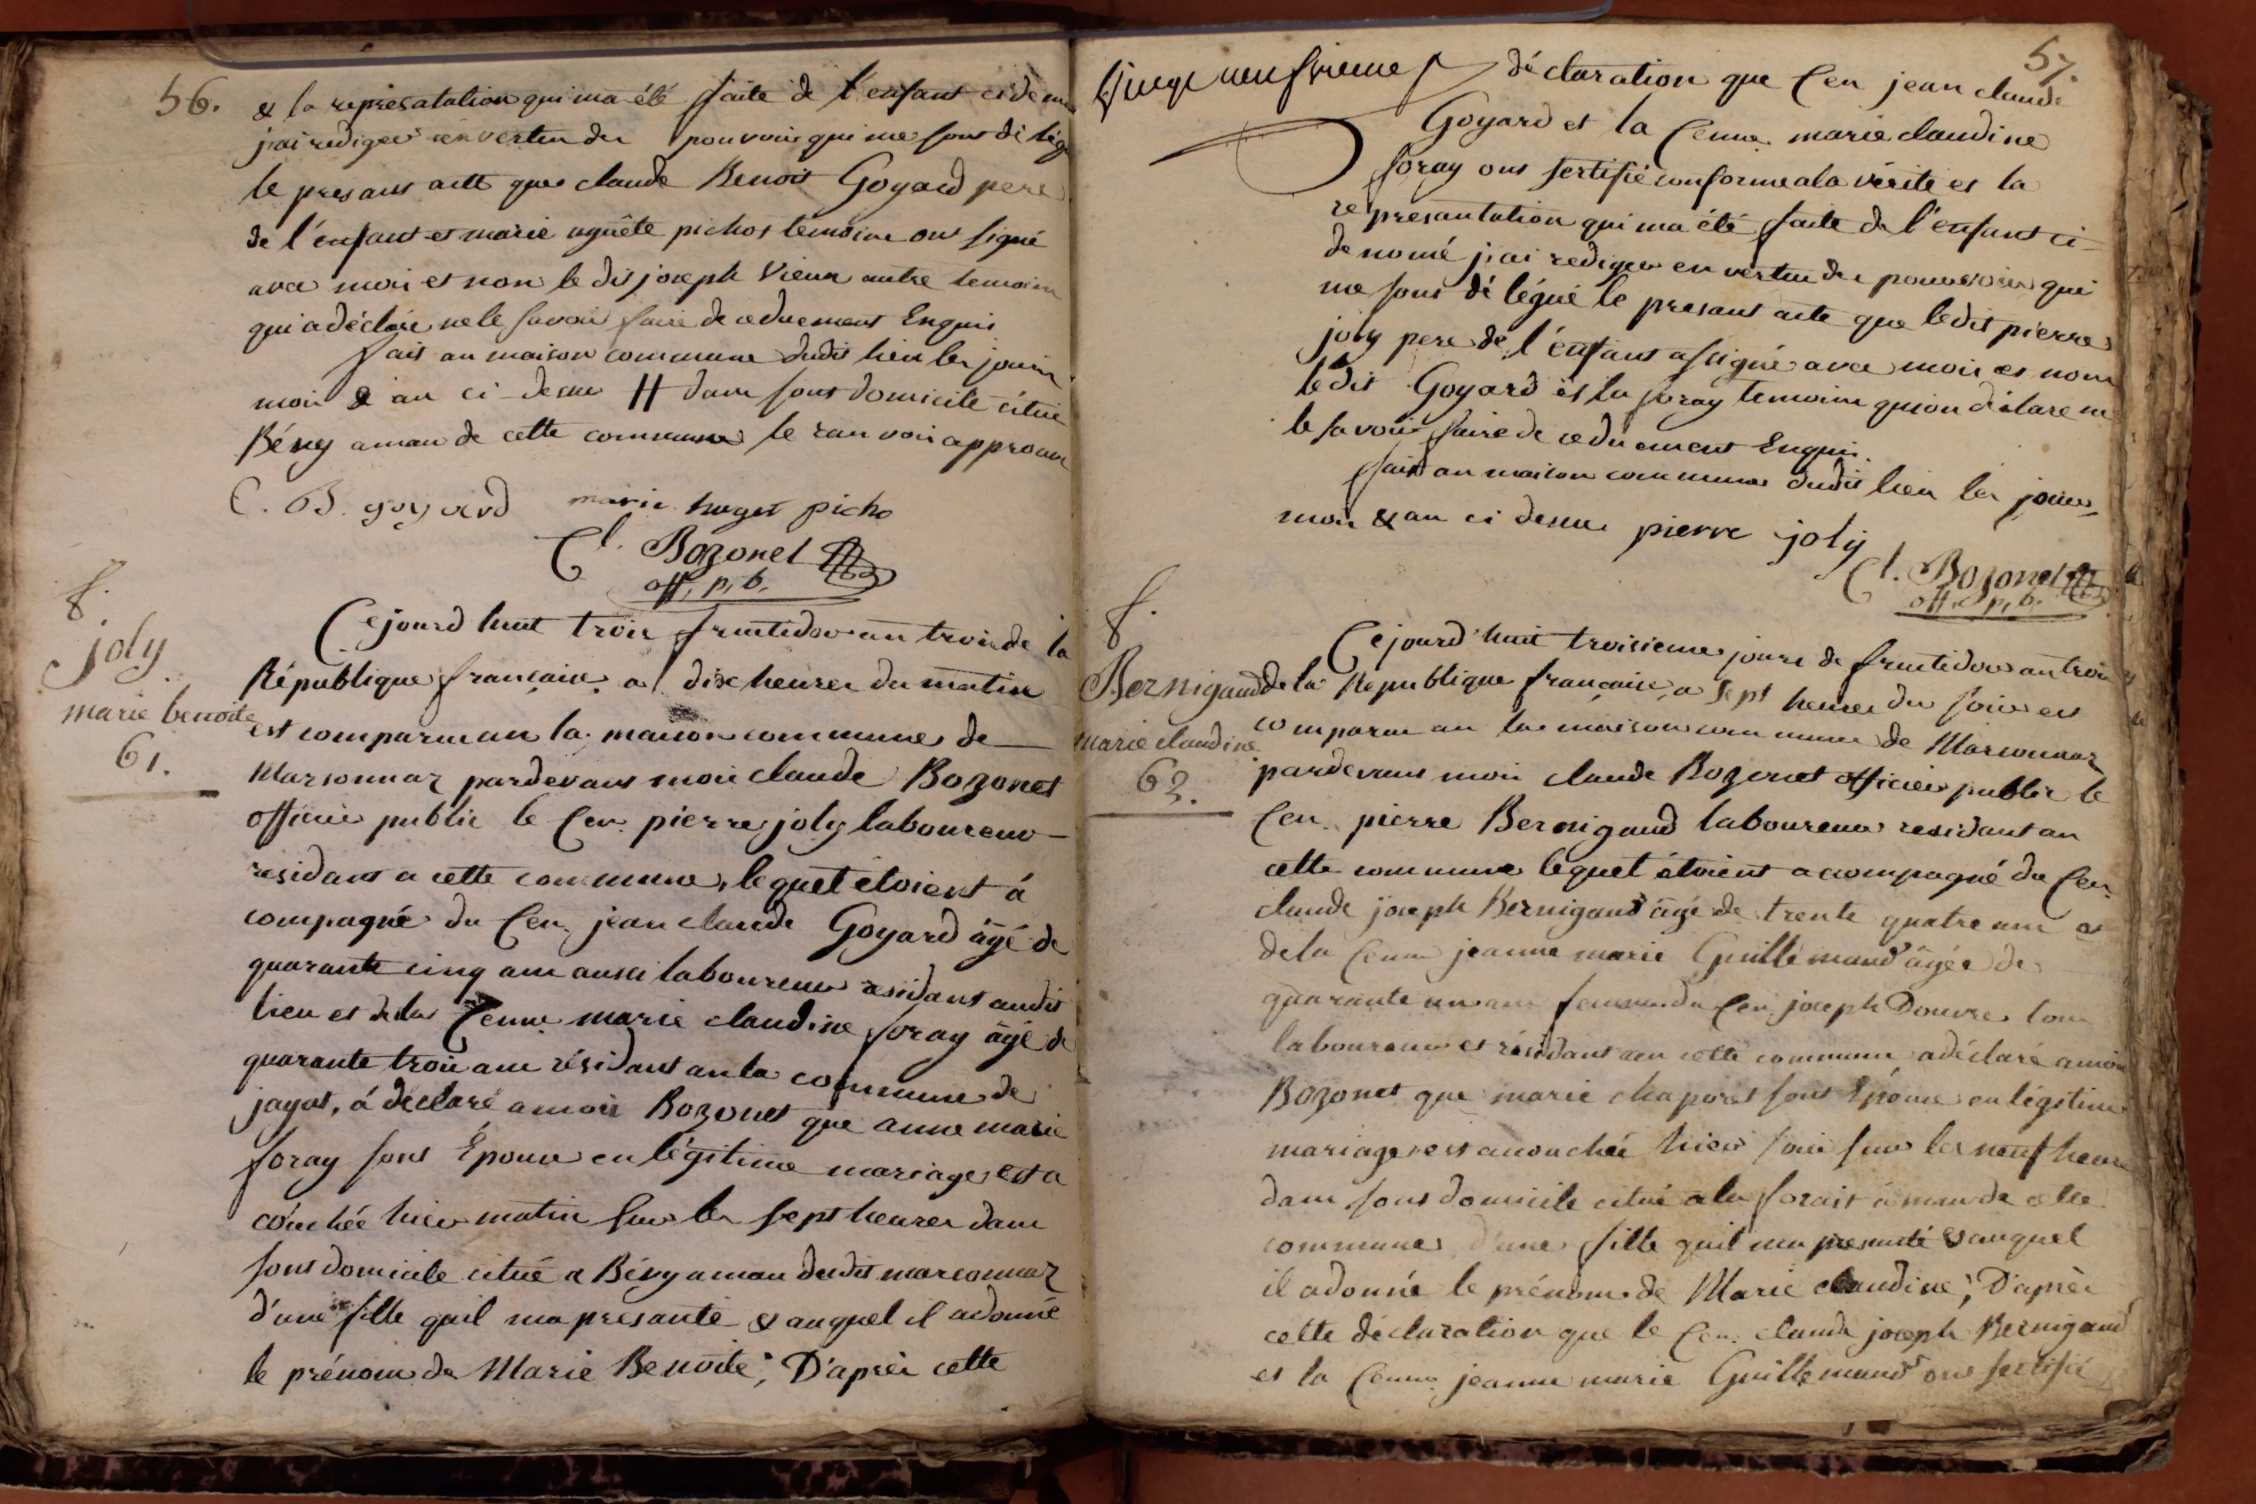 56.
& la represatation qui ma été faite de l'enfant ci de
j'ai rediger en vertu des pouvoirs qui me sont délég
le presant acte que claude Benoit Goyard pere
de l'enfant et marie aguête pichot temoins ont signé
avec moi et non le dit joseph Vieux autre temoin
qui a déclaré ne le savoir faire de ce duement Enquis
fait an maison commune dudit lieu les jours
mois & an ci-desus # dans sont domicile citué
Bévy aman de cette commune le ranvoir approuv
C. B. goyard marie haget picho
Cl. Bozonet
off. p. b.
f.
joly
marie benoite
61.
Cejourd huit trois fructidor an trois de la
République française, a dix heures du matin
est comparu an la maison commune de
Marsonnaz pardevant moi claude Bozonet
officier public le Cen. pierre joly laboureur
residant a cette commune, lequel étoient à
compagné du Cen. jean claude Goyard âgé de
quarante cinq ans aussi laboureur residant audit
lieu et de la Cenne marie claudine foray âgé de
quarante trois ans résidant an la commune de
jayat, á déclaré a moi Bozonet que anne marie
foray sont Épouse en légitime mariage est a
couchée hier matin sur les sept heures dans
sont domicile citué a Bévy aman dudit marsonnaz
d'une fille quil ma presanté & auquel il a donné
le prénom de Marie Benoite; D'après cette
57.
Vingt neufvieme f
déclaration que Cen jean claude
Goyard et la Cenne marie claudine
foray ont sertifié conforme a la vérité et la
representation qui ma été faite de l'enfant ci
denomé j'ai rediger en vertu des pouvoirs qui
me sont délégué le presant acte que ledit pierre
joly pere de l'enfant a signé avec moi et nom
ledit Goyard et la foray temoins quion déclare ne
le savoir faire de ce duement Enquis.
fait an maison commune dudit lieu les jours,
mois & an ci desus pierre joly
Cl. Bozonet
off. p. b.
f.
Bernigaud
marie claudine
62.
Cejourd'huit troisieme jours de fructidor an trois
de la République française, a sept heures du soir est
comparu an la maison commune de Marsonnaz
pardevant moi claude Bozonet officier public le
Cen. pierre Bernigaud laboureur residant an
cette commune lequel étoient acompagné du Cen.
claude joseph Bernigaud âgé de trente quatre ans et
de la Cenne jeanne marie Guillemaud âgée de
quarante un ans femme du Cen. joseph Douvre tous
laboureurs et résidant an cette commune a déclaré a moi
Bozonet que marie chaporet sont Épouse en légitime
mariage est acouchée hier soir sur les neuf heures
dans sont domicile citué a la forait aman de cette
commune d'une fille quil ma presenté & auquel
il a donné le prénom de Marie claudine; D'après
cette déclaration que le Cen. claude joseph Bernigaud
et la Cenne jeanne marie Guillemaud ont sertifié